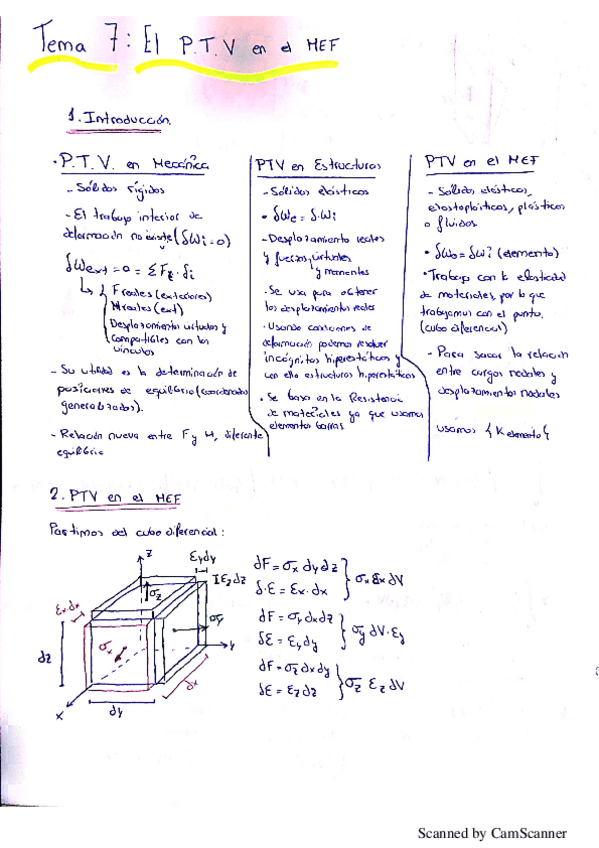 Tema 7: El P.T.V en el MEF
1. Introducción.
· P.T.V. en Mecánica
- Sólidos rígidos
- El trabajo interior de
deformación no existe (δWi=0)
δWext = 0 = ΣF₂·δi
F reales (exteriores)
M reales (ext)
Desplazamientos virtuales y
compatibles con los
vínculos
- Su utilidad es la determinación de
posiciones de equilibrio (coordenadas
generalizadas).
- Relación nueva entre F y M, diferente
equilibrio
PTV en Estructuras
- Sólidos elásticos
· δWe = δ·Wi
- Desplazamiento reales
y fuerzas virtuales
y momentos
- Se usa para obtener
los desplazamientos reales
· Usando condiciones de
deformación podemos resolver
incógnitas hiperestáticas y
con ello estructuras hiperestáticas
· Se basa en la Resistencia
de materiales ya que usamos
elementos barras
PTV en el MEF
- Sólidos elásticos,
elastoplásticos, plásticos
o fluidos
· δWe = δWi (elemento)
· Trabaja con la elasticidad
de materiales, por lo que
trabajamos con el punto.
(cubo diferencial)
- Para sacar la relación
entre cargas nodales y
desplazamientos nodales
usamos {K elemento}
2. PTV en el MEF
Partimos del cubo diferencial:
z
εydy
Iεzdz
σz
εx·dx
σy
y
σx
dz
dx
x
dy
dF = σx dy dz
δ·E = εx·dx
σx εx dV
dF = σy dx dz
δE = εy dy
σy dV·εy
dF = σz dx dy
δE = εz dz
σz εz dV
Scanned by CamScanner